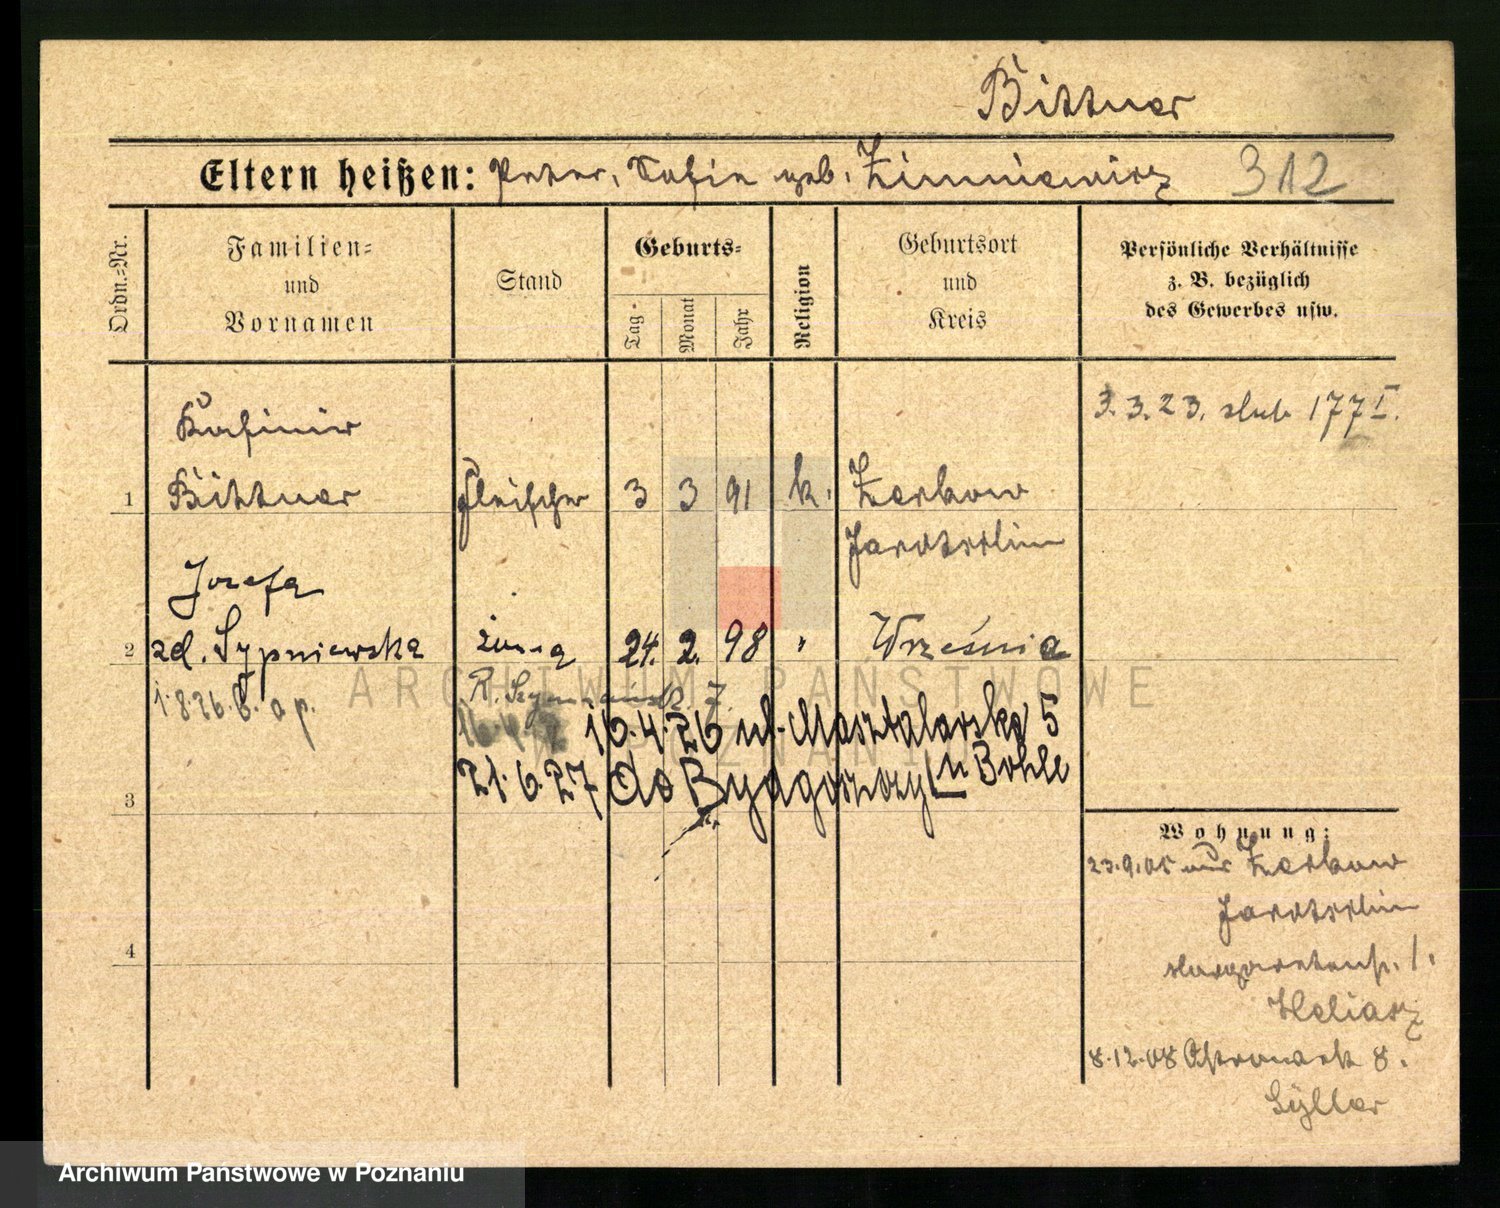 Bittner
Eltern heißen: Peter, Sofie geb. Zimniewicz 312
Ordn.=Nr.
Familien=
und
Vornamen
Stand
Geburts=
Tag
Monat
Jahr
Religion
Geburtsort
und
Kreis
Persönliche Verhältnisse
z. B. bezüglich
des Gewerbes usw.
3.3.23. slub 177 I.
Kasimir
1 Bittner Fleischer 3 3 91 k. Zerkow
Jarotschin
Józefa
2 zd. Sypniewska żona 24. 2. 98 " Września
1.8.26. B. a p.
16.4.26 ul. Masztalarska 5
21.6.27 do Bydgoszczy u Bohle
3
4
Wohnung:
23.9.05 aus Zerkow
Jarotschin
Margaretenstr. 1.
Heliasz
8.12.08 8.
ARCHIWUM PAŃSTWOWE
W POZNANIU
Archiwum Państwowe w Poznaniu